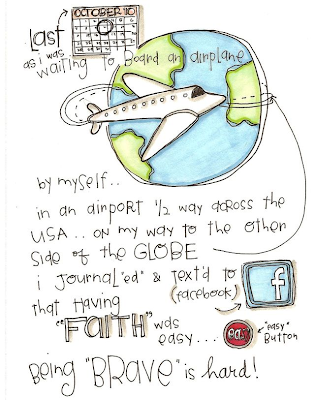 OCTOBER '10
last
as i was
waiting to board an airplane
by myself..
in an airport 1/2 way across the
USA.. on my way to the other
side of the GLOBE
i journal "ed" & text'd to
(facebook)
f
that having
"FAITH" was
easy...
easy
"easy"
Button
Being "BRAVE" is hard!